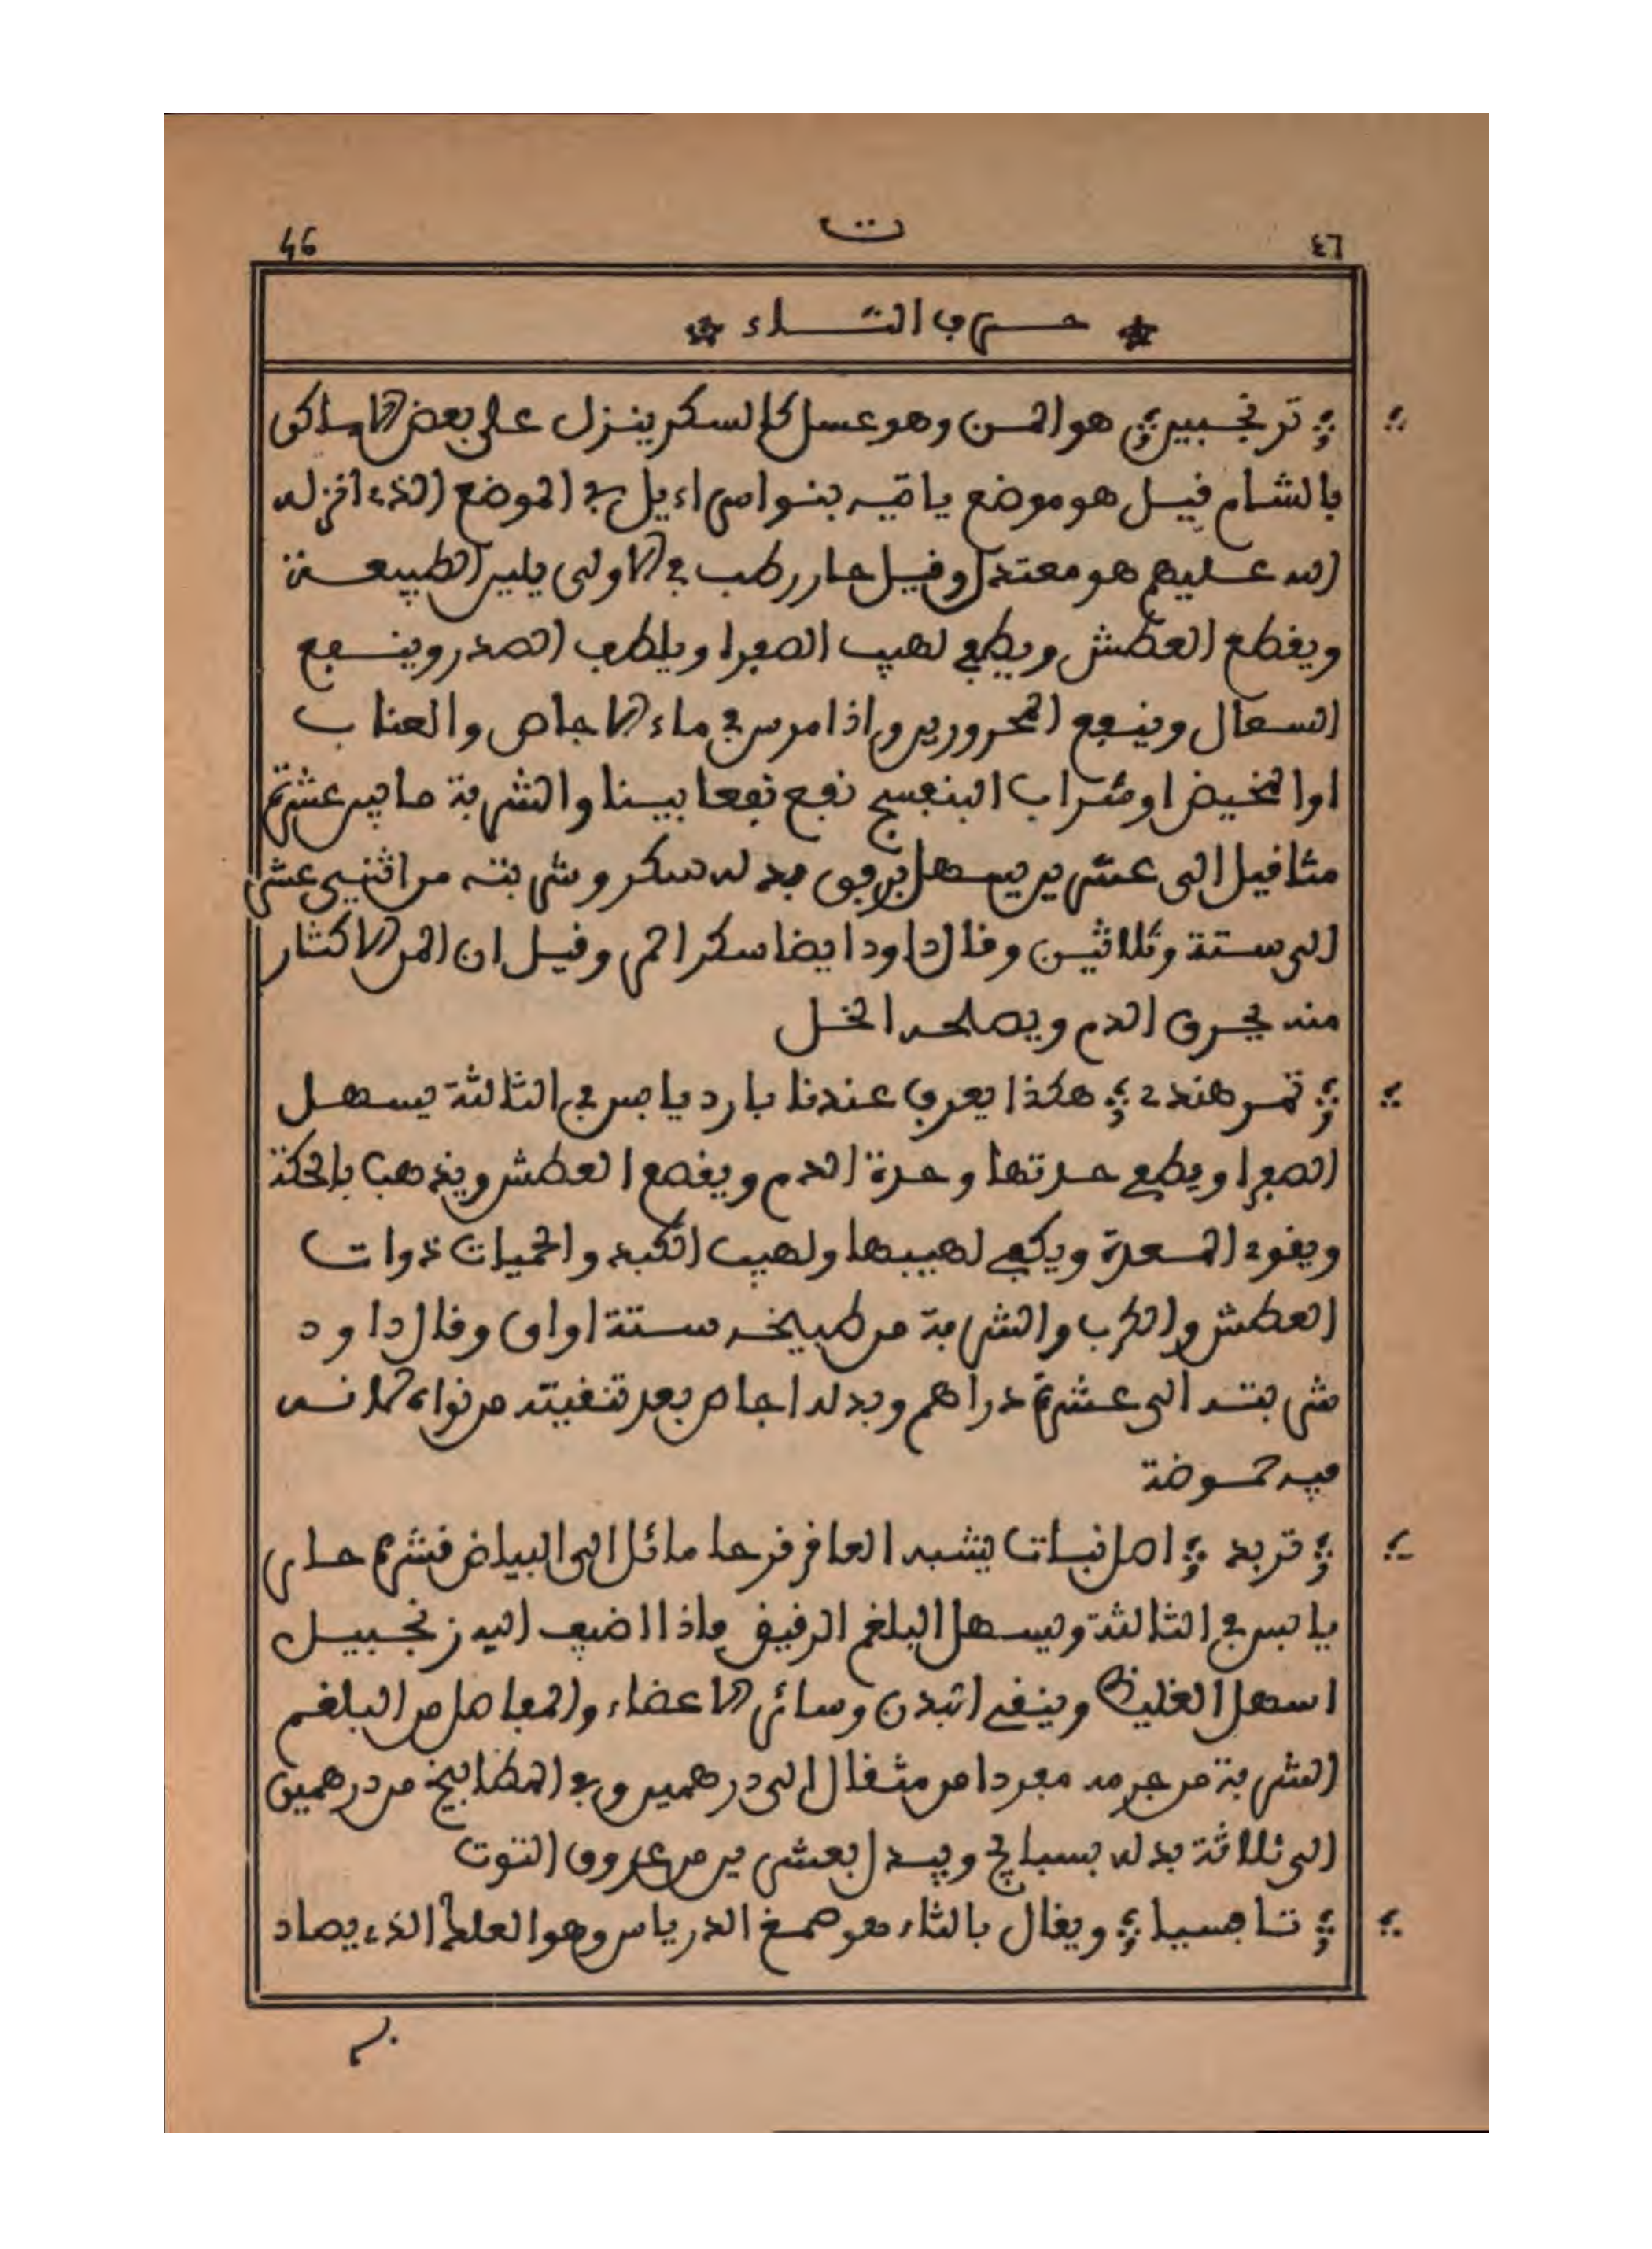 ت
46 ٤٦
حرف التاء
ترنجبين هو المن وهو عسل كالسكر ينزل على بعض الاماكن
بالشام فيل هو موضع ياتيه بنوا سراءيل في الموضع الذي انزله
الله عليهم هو معتدل وفيل حار رطب في الاولى يلين الطبيعة
ويفطع العطش ويطفي لهيب الصفرا ويلطف الصدر وينفع
السعال وينفع المحرورين واذا مرس في ماء الاجاص والعناب
او المخيض او شراب البنفسج نفع نفعا بينا والشربة ما بين عشرة
مثافيل الى عشرين يسهل برفق بدله سكر وشربته من اثنيي عشر
الى ستة وثلاثين وفال داود ايضا سكر احمر وفيل ان المن الاكثار
منه يحرق الدم ويصلحه الخل
تمر هندي هكذا يعرف عندنا بارد يابس في الثالثة يسهل
الصفرا ويطفي حدتها وحدة الدم ويفمع العطش ويذهب بالحكة
ويفوي المعدة ويكفي لهيبها ولهيب الكبد والحميات ذوات
العطش والكرب والشربة من طبيخه ستة اواق وفال داود
شربته الى عشرة دراهم وبدله اجاص بعد تنفيته من نواه لانه
فيه حموضة
تربد اصل نبات يشبه العافر فرحا مائل الى البياض فشره حار
يابس في الثالثة ويسهل البلغم الرفيف واذا اضيف اليه زنجبيل
اسهل الغليظ وينفي البدن وسائر الاعضاء والمفاصل من البلغم
الشربة من جرمه مفردا من مثفال الى درهمين وفي المطابيخ من درهمين
الى ثلاثة بدله بسبايج ويبدل بعشرين من عروق التوت
تافسيا ويفال بالثاء هو صمغ الدرياس وهو العلك الذي يصاد